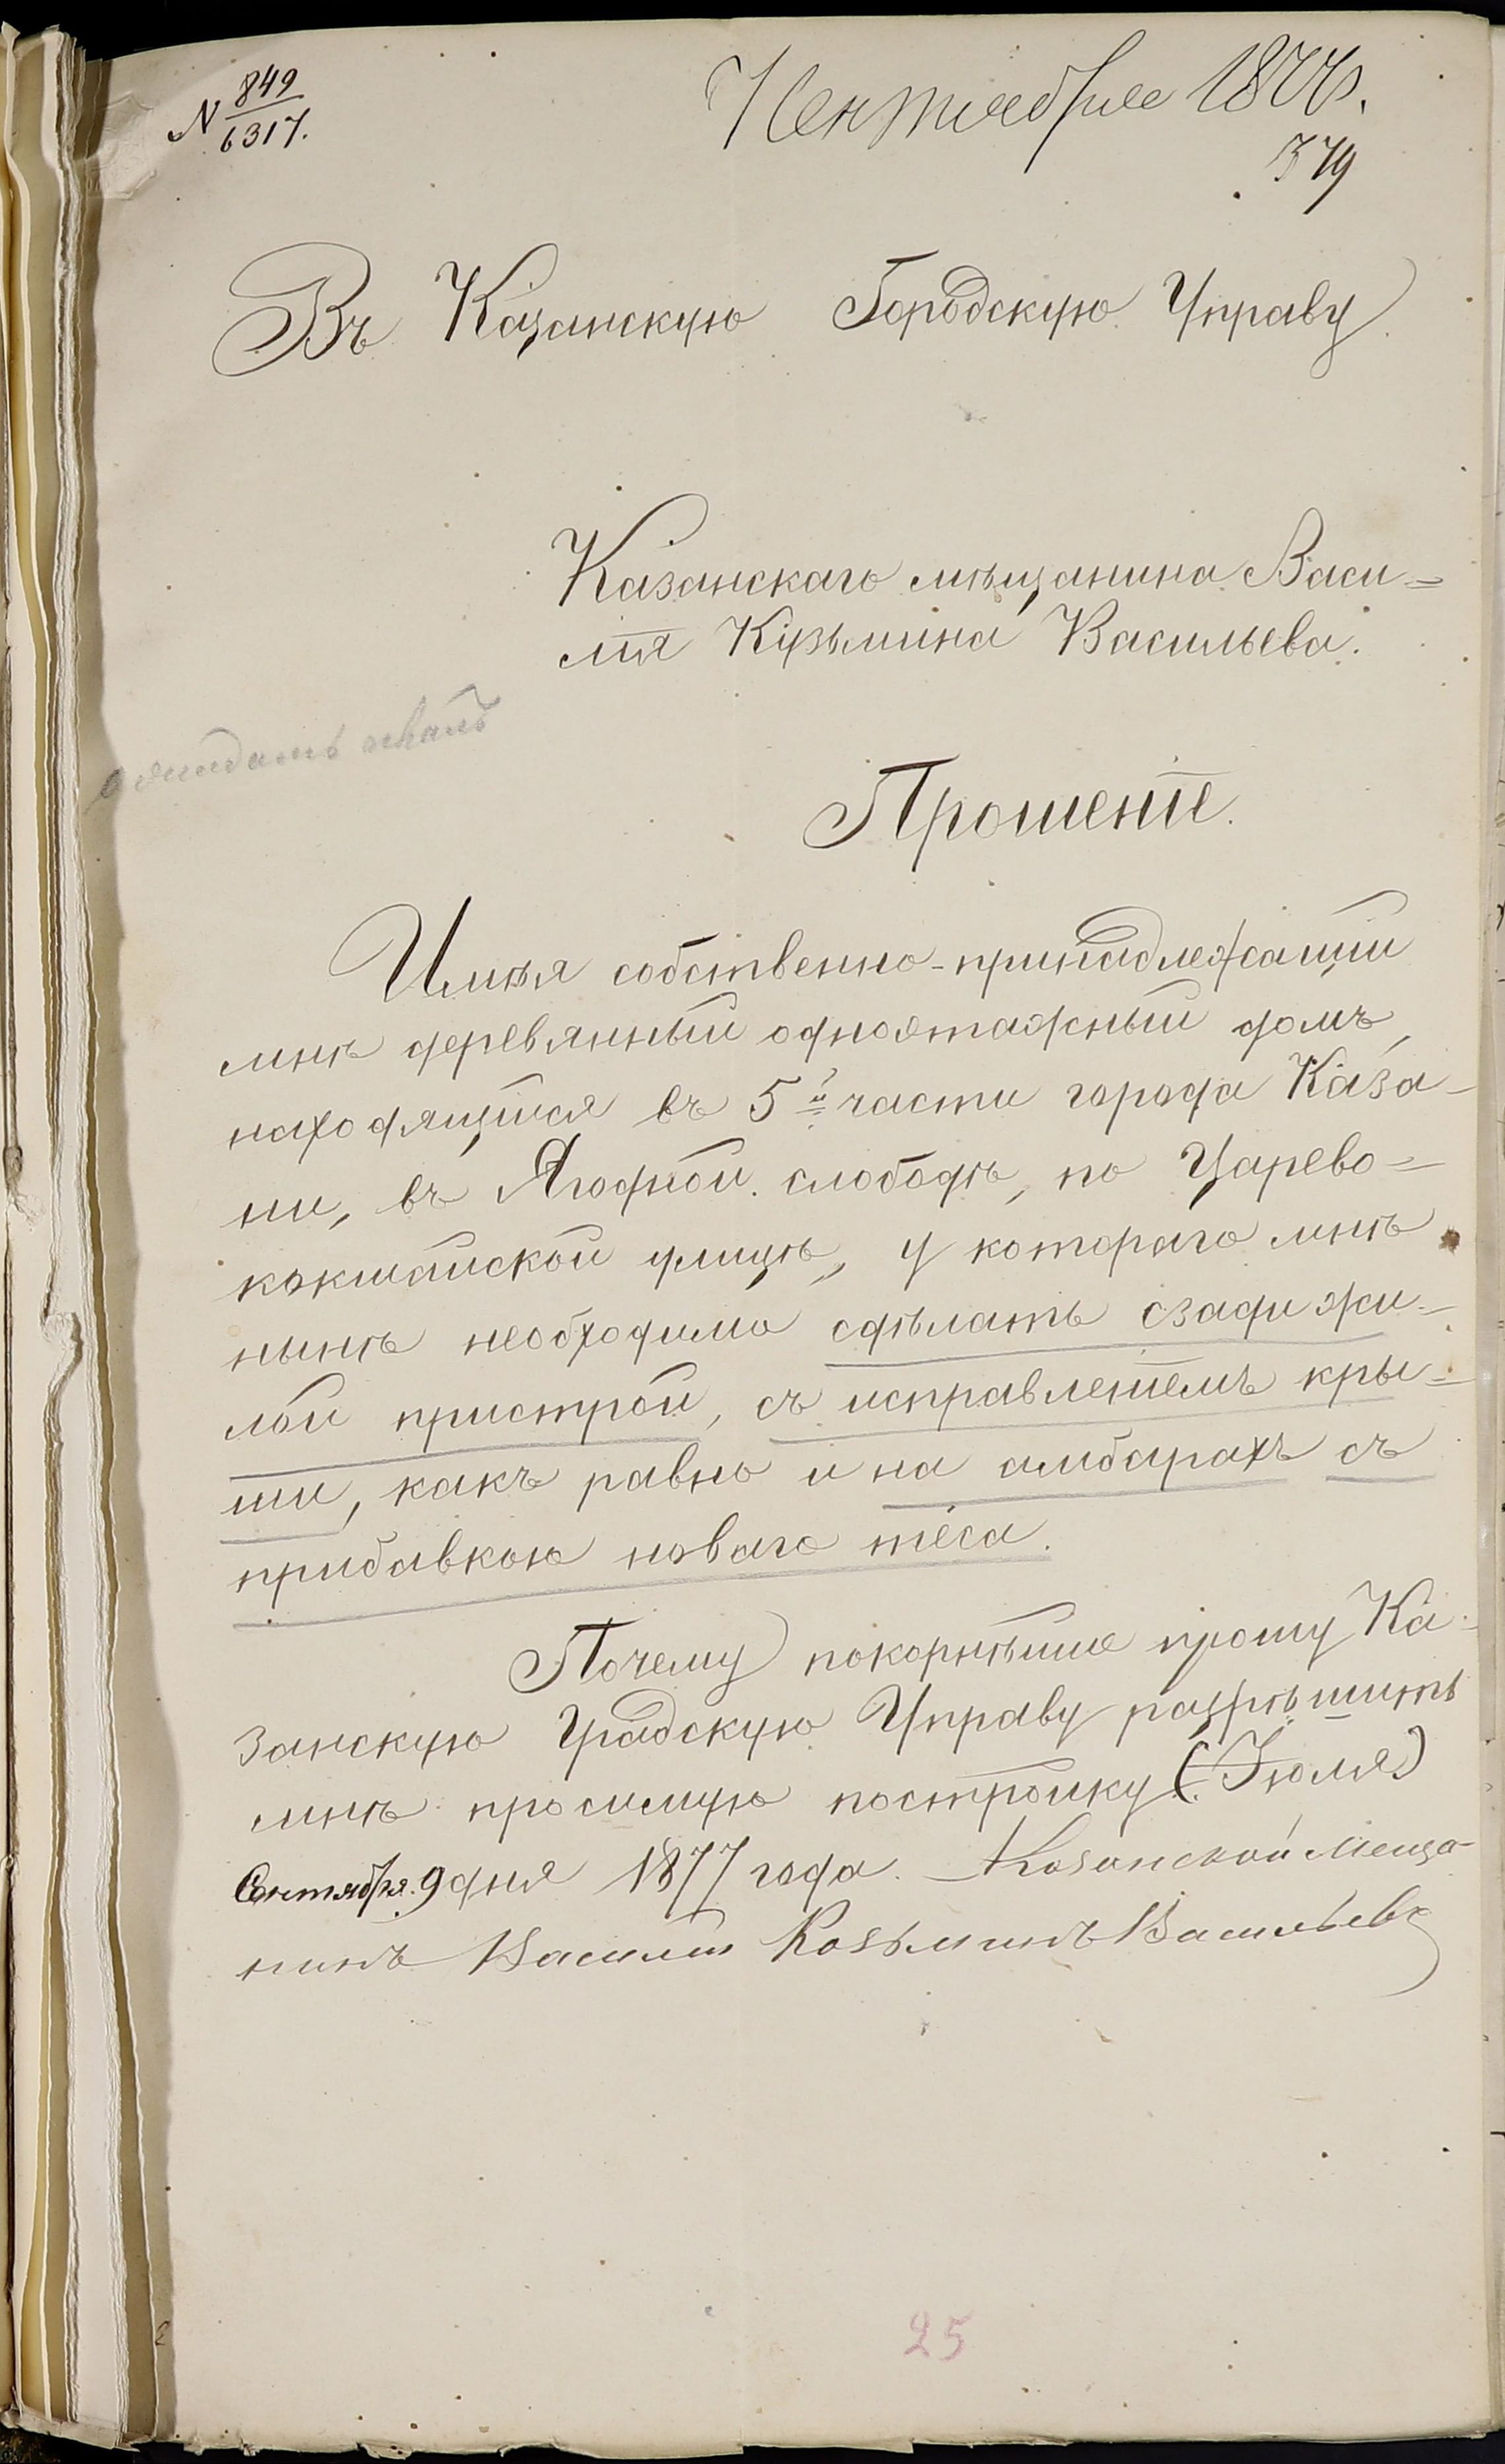 N 849
6317.
Сентября 1877.
379
Въ Казанскую Городскую Управу
Казанскаго мѣщанина Васи=
лія Кузьмина Васильева.
Прошеніе.
Имѣя собственно-принадлежащій
мнѣ деревянный одноэтажный домъ,
находящійся въ 5й части города Каза-
ни, въ Ягодной слободѣ, по Царево=
кокшайской улицѣ, у котораго мнѣ
нынѣ необходимо сдѣлать сзади жи-
лой пристрой, съ исправленіемъ кры=
ши, какъ равно и на амбарахъ съ
прибавкою новаго тёса.
Почему покорнѣйше прошу Ка-
занскую Градскую Управу разрѣшить
мнѣ просимую постройку (Іюля)
Сентября 9 дня 1877 года. Козанской меща-
нинъ Василій Козьминъ Васильевъ
25